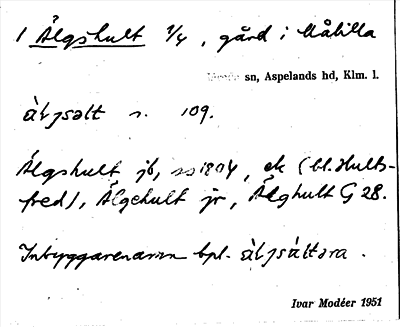 1 Älgshult 1/4, gård i Målilla
sn, Aspelands hd, Klm. l.
àl̨jsəlt n. 109.
Älgshult jb, ss 1804, ek (bl. Hults-
fred), Älgehult jr, Älghult G 28.
Inbyggarenamn bpl. àl̨jsáltəra.
Ivar Modéer 1951